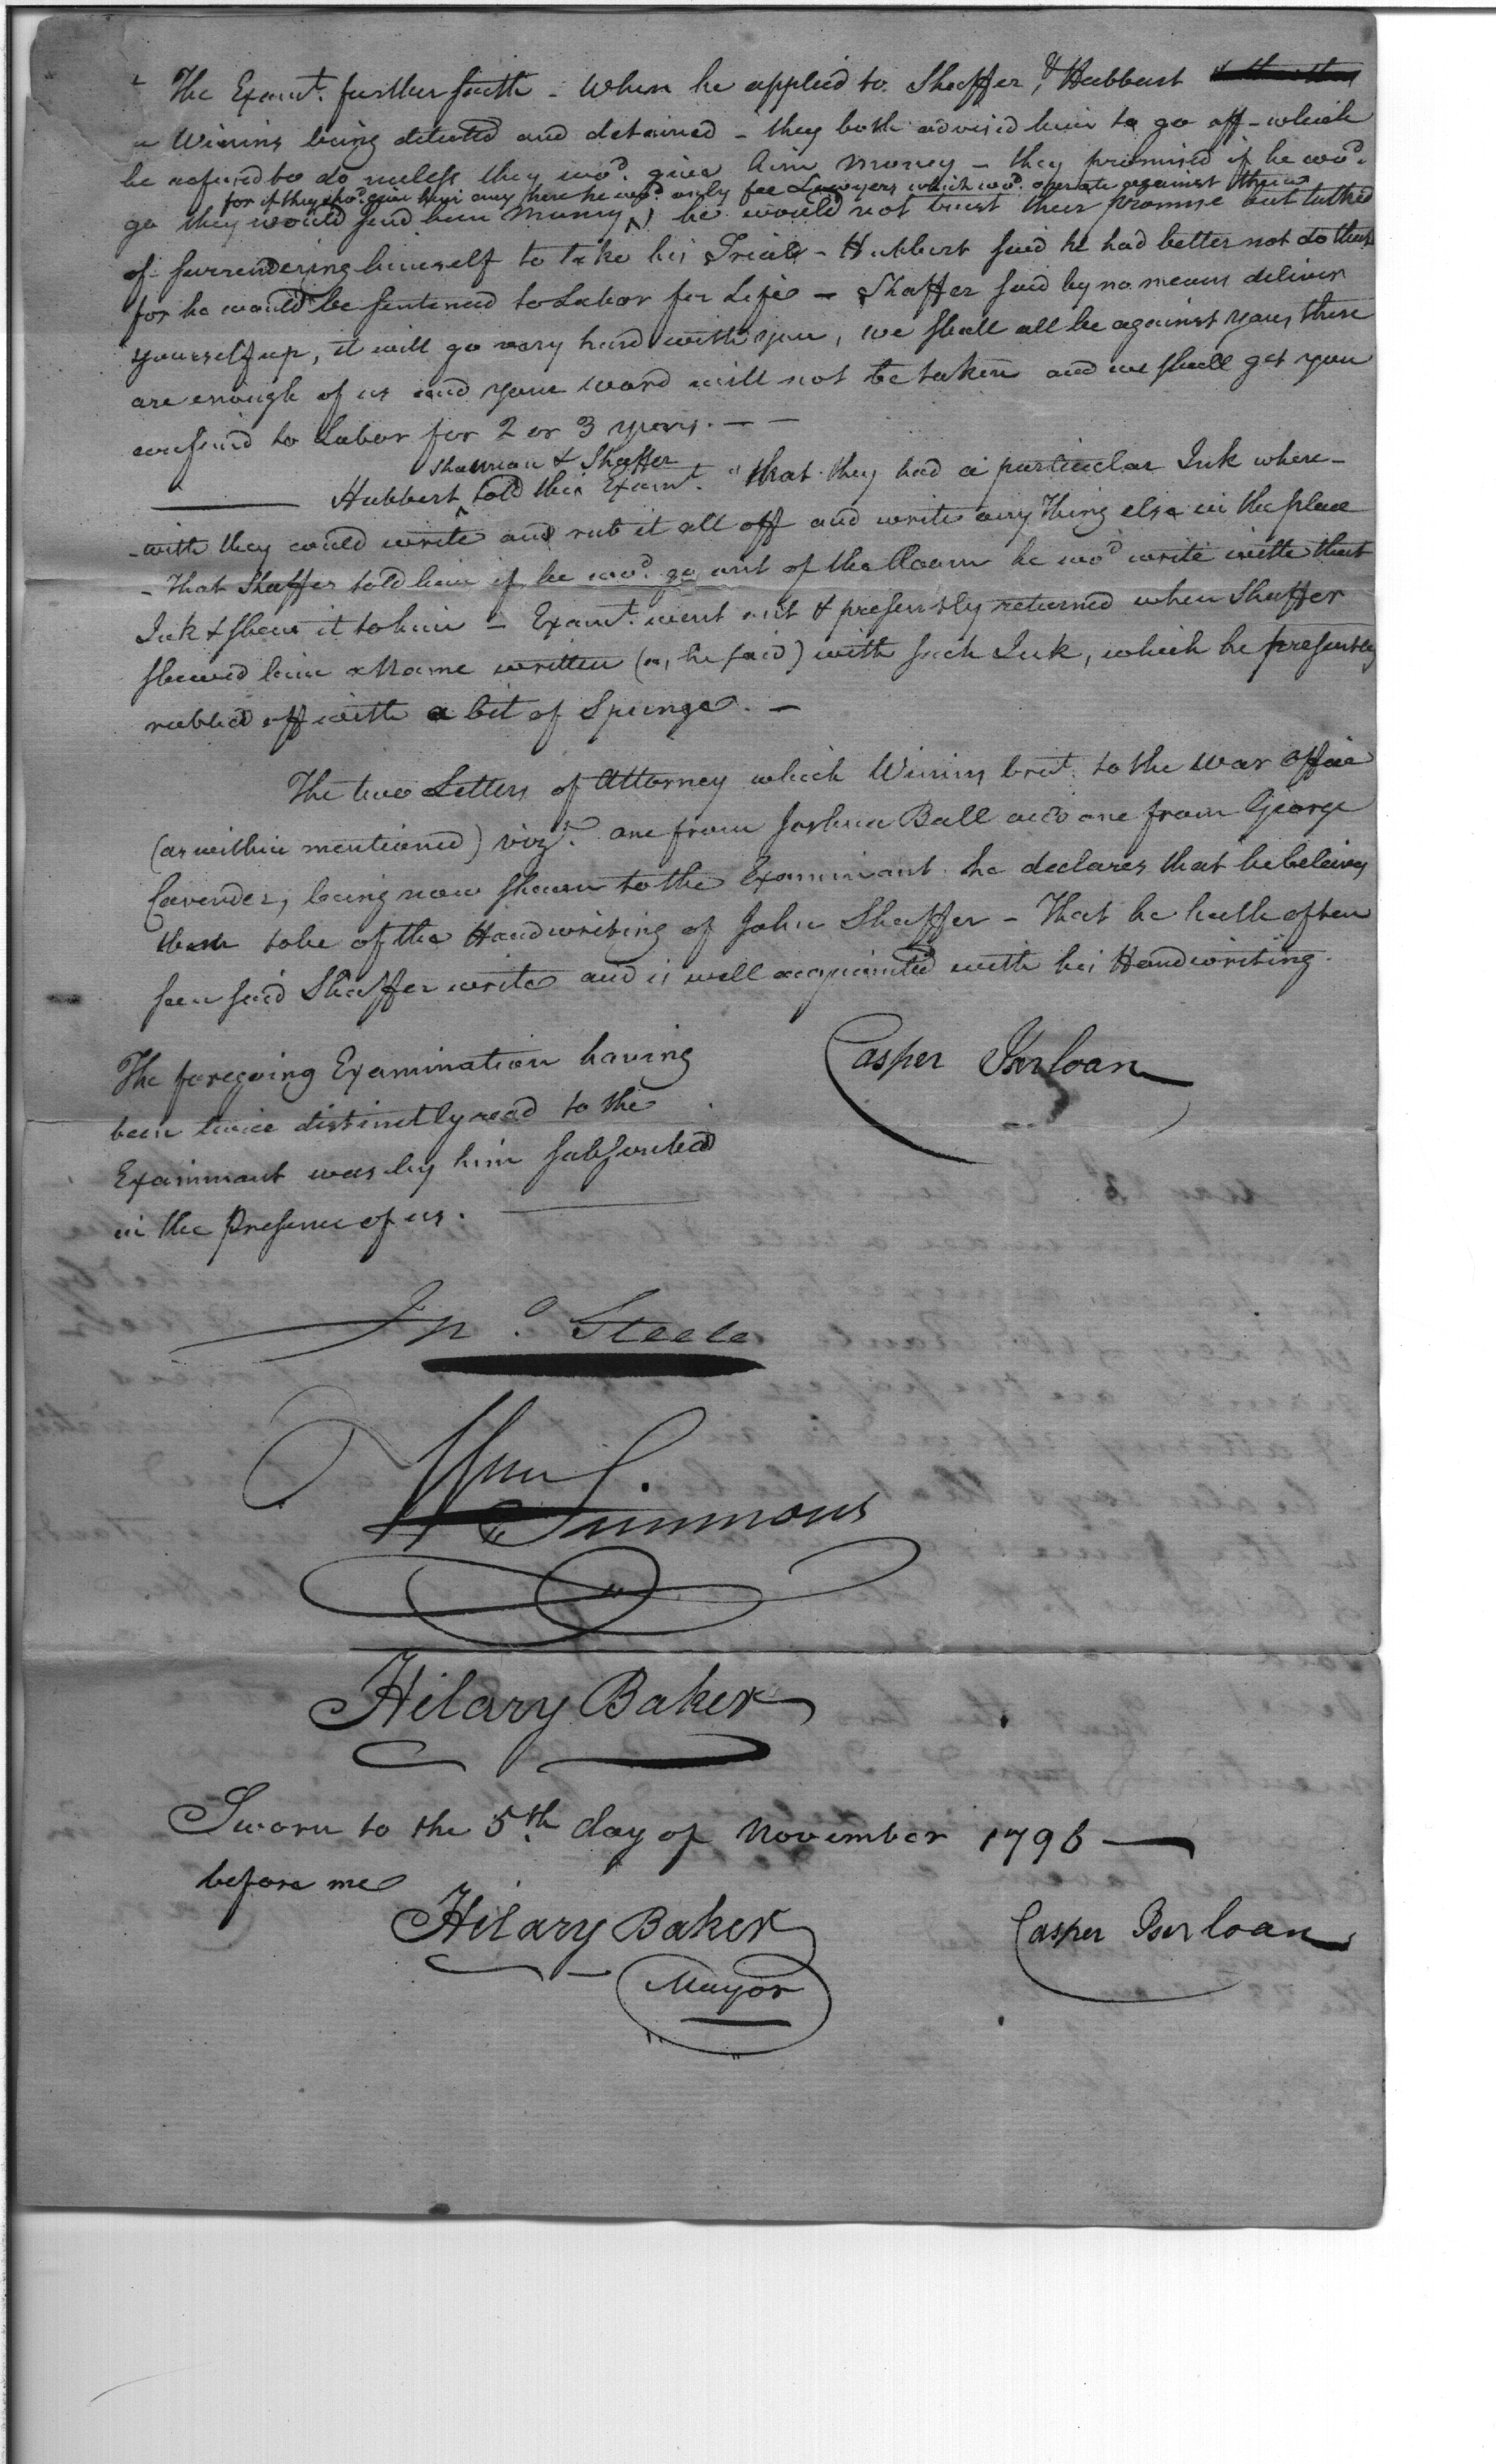 The Examt. further saith - When he applied to Shaffer, & Hubbart
on Winins being detected and detained - they both advised him to go off - which
he refused to do unless they wod. give him Money - they promised if he wod.
for if they shod. give him any here he wod. only fee Lawyers which wod. operate against them
go they would send him Money ^ he would not trust their promise but talked
of surrendering himself to take his Trial - Hubbert said he had better not do that
for he would be sentenced to Labor for Life - Shaffer said by no means deliver
yourself up, it will go very hard with you, we shall all be against you, there
are enough of us and your word will not be taken and we shall get you
confined to Labor for 2 or 3 years. - -
Shannon & Shaffer
Hubbert ^ told this Examt. "that they had a particular Ink where-
-with they could write and rub it all off and write any Thing else in the place
- That Shaffer told him if he wod. go out of the Room he wod write with that
Ink & shew it to him - Examt. went out & presently returned when Shaffer
shewed him a Name written (as, he said) with such Ink, which he presently
rubbed off with a bit of Spunge. -
The two Letters of Attorney which Winins brot. to the War Office
(as within mentioned) vizt. one from Joshua Ball and one from George
Cavender, being now shewn to the Examinant he declares that he believes
them to be of the Handwriting of John Shaffer - That he hath often
seen said Shaffer write and is well acquainted with his Handwriting.
The foregoing Examination having
been twice distinctly read to the
Examinant was by him subscribed
in the Presence of us.
Casper Iserloan
Jno. Steele
Wm Simmons
Hilary Baker
Sworn to the 5th day of November 1796
before me
Hilary Baker
Mayor
Casper Iserloan